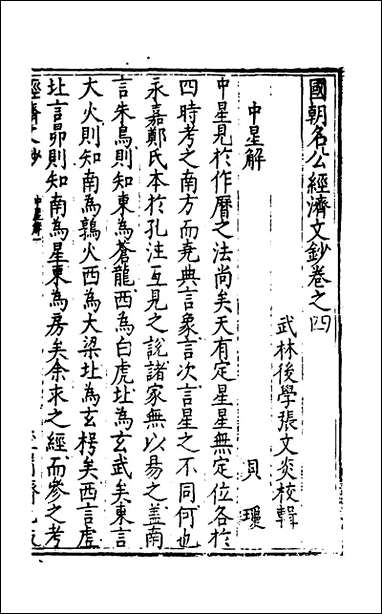 國朝名公經濟文鈔卷之四
武林後學張文炎校輯
中星解
貝瓊
中星見於作曆之法尚矣天有定星星無定位各於
四時考之南方而堯典言象言次言星之不同何也
永嘉鄭氏本於孔注互見之說諸家無以易之盖南
言朱鳥則知東為蒼龍西為白虎北為玄武矣東言
大火則知南為鶉火西為大梁北為玄枵矣西言虚
北言昴則知南為星東為房矣余求之經而參之考
經濟文鈔
中星解一